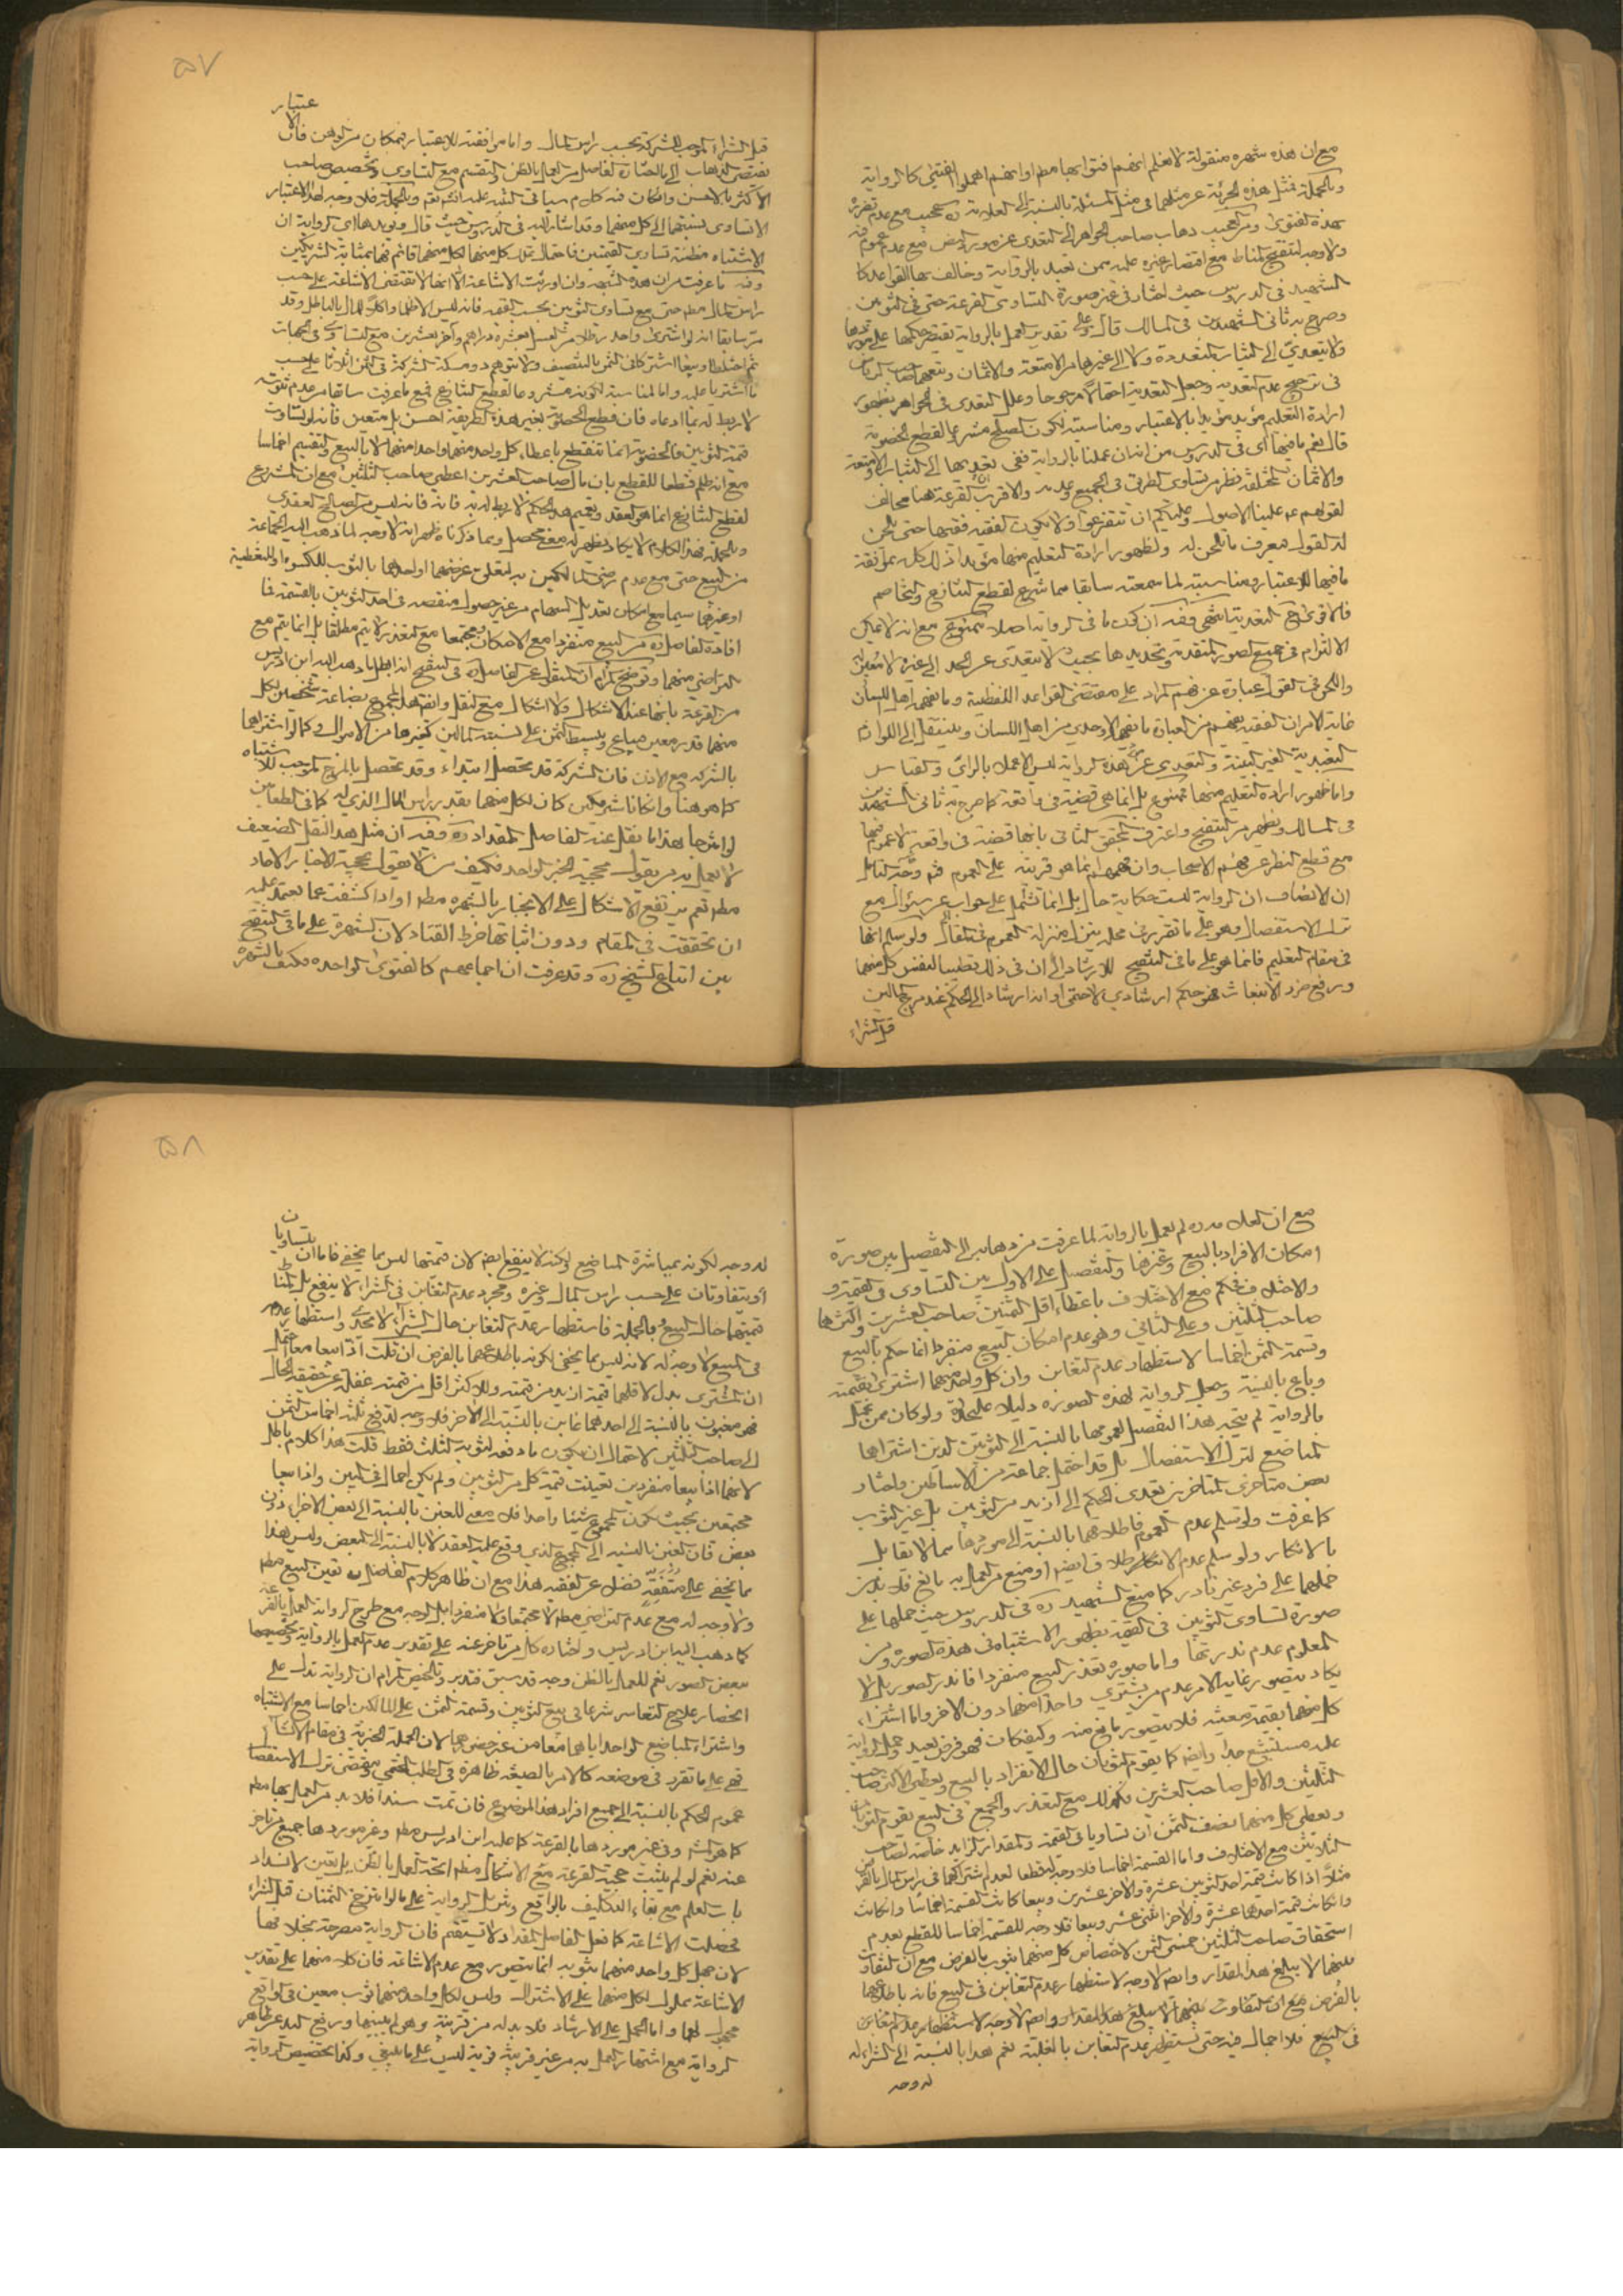 مع ان هذه شهره منقولة لانعلم انهم افتوا بها مطم او انهم اهملوا الفتيى كالرواية
وبالجملة فمثل هذه الجرئة عن مثلهما فى مثل المسئلة بالنسبة الى العلامة ره عجيب مع عدم تفرده
بهذه الفتوى ومن العجيب ذهاب صاحب الجواهر الى التعدى عن مورد النص مع عدم عموم فيه
ولا وجه لتنقيح المناط مع اقتصار غيره عليه ممن تعبد بالرواية وخالف بها القواعد كا
الشهيد فى الدروس حيث اختار فى غير صورة التساوى القرعة حتى فى الثوبين
وصرح به ثانى الشهيدين فى المسالك قال وعلى تقدير العمل بالرواية يقتصر حكمها على موردها
ولا يتعدى الى الثياب المتعددة ولا الى غيرها من الامتعة والاثمان وتبعهما صاحب الرياض
فى ترجيح عدم التعديه وجعل التعدية احتمالا مرجوحا وعلل التعدى فى الجواهر بظهور
ارادة التعليم مؤيدا بالاعتبار ومناسبته لكون الصلح مشرعا لقطع الخصومة
قال نعم ما فيها اى فى الدروس من انا ان عملنا بالرواية ففى تعديها الى الثياب والامتعة
والاثمان المختلفة نظر من تساوى الطرق فى الجميع وعدمه والاقرب القرعة هنا مخالف
لقولهم ع علينا الاصول وعليكم ان تتفرعوا ولا يكون الفقيه فقيها حتى يلحن
له القول فيعرف ما يلحن له ولظهور ارادة التعليم منها مؤيدا ذلك كله بموافقة
ما فيها للاعتبار ومناسبته لما سمعته سابقا مما شرع لقطع التنازع والتخاصم
فالاقوى ح التعدية انتهى وفيه ان كون ما فى الرواية اصلا ممنوع مع انه لا يمكن
الالتزام فى جميع الصور المتقدمة وتحديدها بحيث لا يتعدى عن الحد الى غيره لا تعين له
واللحن فى القول عبارة عن فهم المراد على مقتضى القواعد اللفظية وما يفهم اهل اللسان
غاية الامر ان الفقيه يفهم من العبارة ما يفهم الاوحدى من اهل اللسان وينتقل الى اللوازم
البعيدية الغير البينة والتعدى عن هذه الرواية ليس الا عملا بالراى والقياس
واما ظهور ارادة التعليم منها فممنوع بل انما هى قضية فى واقعة كما صرح به ثانى الشهيدين
فى المسالك ويظهر من التنقيح واعترف المحقق الثانى بانها قضية فى واقعة لا عموم فيها
مع قطع النظر عن فهم الاصحاب وان فهمهم انما هو قرينة على العموم فتم وحق التامل
ان الانصاف ان الرواية ليست حكاية حال بل انما تشتمل على جواب عن سؤال مع
ترك الاستفصال وهو على ما تقرر فى محله ينزل منزلة العموم فى المقال ولو سلم انها
فى مقام التعليم فانما هو على ما فى التنقيح للارشاد الى ان فى ذلك تطييبا لنفس كل منهما
ورفع ضرر الانبعاث فهو حكم ارشادى لا حتمى او انه ارشاد الى الحكم عند مزج المالين
قبل الشراء
۵۷
قبل الشراء الموجب للشركة بحسب راس المال واما موافقته للاعتبار فبمكان من الوهن فان الاعتبار
يقتضى الذهاب الى ما اختاره الفاضل من العمل بالظن والتقسيم مع التساوى وتخصيص صاحب
الاكثر بالاحسن وان كان فيه كلام سياتى التنبيه عليه انشاء تعم وبالجملة فلا وجه لهذا الاعتبار
الا تساوى نسبتهما الى كل منهما وقد اشار اليه فى الدروس حيث قال ويؤيدها اى الرواية ان
الاشتباه مظنة تساوى القيمتين فاحتمال تملك كل منهما لكل منهما قائم فهما بمثابة الشريكين
وفيه ما عرفت من ان هذه الشبهة وان اورثت الاشاعة الا انها لا تقتضى الاشاعة على حسب
راس المال مطم حتى مع تساوى الثوبين بحسب القيمة فانه ليس الا ظلما واكلا للمال بالباطل وقد
مر سابقا انه لو اشترى واحد رطلا من العسل بعشرة دراهم وآخر بعشرين مع التساوى فى الجهات
ثم اختلطا وبيعا اشتركا فى الثمن بالتنصيف ولا يتوهم ذو مسكة الشركة فى الثمن اثلاثا على حسب
ما اشتريا عليه واما المناسبة لكونه مشروعا لقطع التنازع فمع ما عرفت سابقا من عدم ثبوته
لا ربط له بما ادعاه فان قطع الخصومة بغير هذه الطريقة احسن بل متعين فانه لو تساوت
قيمة الثوبين فالخصومة انما تنقطع باعطاء كل واحد منهما واحدا منهما لا بالبيع والتقسيم اخماسا
مع انه ظلم قطعا للقطع بان مال صاحب العشرين اعطى صاحب الثلثين مع ان المشروع
لقطع التنازع انما هو العقد وتعميم هذا الحكم لا ربط له به فانه ليس من الصلح العقدى
وبالجملة فهذا الكلام لا يكاد يظهر له معنى محصل ومما ذكرنا ظهر انه لا وجه لما ذهب اليه الجماعة
من البيع حتى مع عدم رضى المالكين به لتعلق غرضهما او احدهما بالثوب للكسوة او للتغطية
او غيرها سيما مع امكان تعديل السهام من غير حصول منقصة فى احد الثوبين بالقسمة فما
افاده الفاضل ره من البيع منفردا مع الامكان ومجتمعا مع التعذر لا يتم مطلقا بل انما يتم مع
التراضى منهما وتوضيح المرام ان المنقول عن الفاضل ره فى التنقيح انه ابطل ما ذهب اليه ابن ادريس
من القرعة بانها عند الاشكال ولا اشكال مع النقل وانضم هذا المجموع بضاعة شخصين لكل
منهما قدر معين فيباع ويبسط الثمن على نسبة المالين كغيرها من الاموال وكما لو اشتراهما
بالشركة مع الاذن فان الشركة قد تحصل ابتداء وقد تحصل بالمزج الموجب للاشتباه
كما هو هنا واذا كانا شريكين كان لكل منهما بقدر راس المال الذى له كما فى الطعامين
لو امتزجا هذا ما نقل عنه الفاضل المقداد ره وفيه ان مثل هذا النقل الضعيف
لا يعمل به من يقول بحجية الخبر الواحد فكيف من لا يقول بحجية الاخبار الاحاد
مطم نعم يرتفع الاشكال على الانجبار بالشهره مطم او اذا كشفت عما يعتمد عليه
ان تحققت فى المقام ودون اثباتها خرط القتاد لان الشهرة على ما فى التنقيح
بين اتباع الشيخ ره وقد عرفت ان اجماعهم كالفتوى الواحده فكيف بالشهرة
مع ان العلامه ره لم يعمل بالرواية لما عرفت من ذهابه الى التفصيل بين صورة
امكان الافراد بالبيع وغيرها والتفصيل على الاول بين التساوى فى القيمة و
والاختلاف فحكم مع الاختلاف باعطاء اقل الثمنين صاحب العشرين واكثرهما
صاحب الثلثين وعلى الثانى وهو عدم امكان البيع منفردا انما حكم بالبيع
وقسمة الثمن اخماسا لاستظهار عدم التغابن وان كل واحد منهما اشترى بقيمته
وباع بالنسبة وجعل الرواية لهذه الصورة دليلا عليحدة ولو كان ممن يعمل
بالرواية لم يتجه هذا التفصيل لعمومها بالنسبة الى الثوبين الذين اشتراها
المباضع لترك الاستفصال بل قد احتمل جماعة من الاساطين واختار
بعض متاخرى المتاخرين تعدى الحكم الى ازيد من الثوبين بل غير الثوب
كما عرفت ولو سلم عدم العموم فاطلاقهما بالنسبة الى موردها مما لا يقابل
بالانكار ولو سلم عدم الاطلاق ايضا او منع من العمل به مانع فلا بد من
حملها على فرد غير نادر كما منع الشهيد ره فى الدروس حيث حملها على
صورة تساوى الثوبين فى القيمة بظهور الاشتباه فى هذه الصورة ومن
المعلوم عدم ندرتها واما صورة تعذر البيع منفردا فاندر الصور بل لا
يكاد يتصور غاية الامر عدم من يشترى واحدا منهما دون الاخر واما اشتراء
كل منهما بقيمة معينة فلا يتصور مانع منه وكيف كان فهو فرض بعيد وحمل الرواية
عليه مستبشع جدا وايضا كما يقوم الثوبان حال الانفراد بالبيع ويعطى الاكثر صاحب
الثلثين والاقل صاحب العشرين فكذلك مع التعذر والجمع فى البيع يقوم الثوبان
ويعطى كل منهما نصف الثمن ان تساويا فى القيمة والمقدار الزايد خاصة لصاحب
الثلاثين مع الاختلاف واما القسمة اخماسا فلا وجه له قطعا لعدم اشتراكهما فى راس المال بالفرض
مثلا اذا كانت قيمة احد الثوبين عشرة والاخر عشرين وبيعا كانت القسمة اخماسا وان كانت
وان كانت قيمة احدهما عشرة والاخر اثنى عشر وبيعا فلا وجه للقسمة اخماسا للقطع بعدم
استحقاق صاحب الثلثين خمسى الثمن لاختصاص كل منهما بثوب بالفرض مع ان التفاوت
بينهما لا يبلغ هذا المقدار وايضا لا وجه لاستظهار عدم التغابن فى البيع فانه باطلاعهما
بالفرض مع ان التفاوت بينهما لا يبلغ هذا المقدار وايضا لا وجه لاستظهار عدم التغابن
فى البيع فلا اجمال فيه حتى يستظهر عدم التغابن بالغلبة نعم هذا بالنسبة الى الشراء له
له وجه
۵۸
له وجه لكونه بمباشرة المباضع لكنه لا ينفع ايضا لان قيمتها ليس مما يخفى فاما ان يتساويان
او يتفاوتان على حسب راس المال وغيره ومجرد عدم التغابن فى الشراء لا ينفع بل المناط
قيمتهما حال البيع وبالجملة فاستظهار عدم التغابن حال الشراء لا يجدى واستظهار عدمه
فى البيع لا وجه له لانه ليس مما يخفى لكونه باطلاعهما بالفرض ان قلت اذا بيعا معا احتمل
ان المشترى بذل لاقلهما قيمة ازيد من قيمته وللاكثر اقل من قيمته غفلة عن حقيقة الحال
فهو مغبون بالنسبة الى احدهما غابن بالنسبة الى الاخر فلا وجه لدفع ثلثه اخماس الثمن
الى صاحب الثلثين لاحتمال ان يكون ما دفعه لثوبه الثلث فقط قلت هذا كلام باطل
لانهما اذا بيعا منفردين تعينت قيمة كل من الثوبين ولم يكن اجمال فى البين واذا بيعا
مجتمعين بحيث يكون المجموع شيئا واحدا فلا معنى للغبن بالنسبة الى بعض الاجزاء دون
بعض فان الغبن بالنسبة الى المجموع الذى وقع عليه العقد لا بالنسبة الى البعض وليس هذا
مما يخفى على متفقه فضلا عن الفقيه هذا مع ان ظاهر كلام الفاضل ره تعين البيع مطم
ولا وجه له مع عدم التراضى مطم لا مجتمعا ولا منفردا بل الوجه مع طرح الرواية العمل بالقرعة
كما ذهب اليه ابن ادريس واختاره كل من تاخر عنه على تقدير عدم العمل بالرواية وتخصيصها
ببعض الصور نعم للعمل بالظن وجه قد سبق فتدبر وتلخيص المرام ان الرواية تدل على
انحصار علاج التعاسر شرعا فى بيع الثوبين وقسمة الثمن على المالكين اخماسا مع الاشتباه
واشتراء المباضع الواحد اياهما معا من غير خصوصية لان الجملة الخبرية فى مقام الانشاء
فهى على ما تقرر فى موضعه كالامر بالصيغة ظاهره فى الطلب الحتمى ومقتضى ترك الاستفصال
عموم الحكم بالنسبة الى جميع افراد هذا الموضوع فان تمت سندا فلا بد من العمل بها مطم
كما هو المش وفى غير موردها بالقرعة كما عليه ابن ادريس مطم وغير موردها جميع من تاخر
عنه نعم لو لم يثبت حجية القرعة مع الاشكال مطم اتجه العمل بالظن بل تعين لانسداد
باب العلم مع بقاء التكليف بالواقع وتنزيل الرواية على ما لو امتزج الثمنان قبل الشراء
فحصلت الاشاعة كما فعل الفاضل المقداد لا يستقيم فان الرواية مصرحة بخلافها
لان جهل كل واحد منهما بثوبه انما يتصور مع عدم الاشاعة فان كلا منهما على تقدير
الاشاعة مملوك لكل منهما على الاشتراك وليس لكل واحد منهما ثوب معين فى الواقع
مجهول لهما واما الحمل على الارشاد فلا بد له من قرينة وهو لم يبينها ورفع اليد عن ظاهر
الرواية مع اشتهار العمل به من غير قرينة قوية ليس على ما ينبغى وكذا تخصيص الرواية